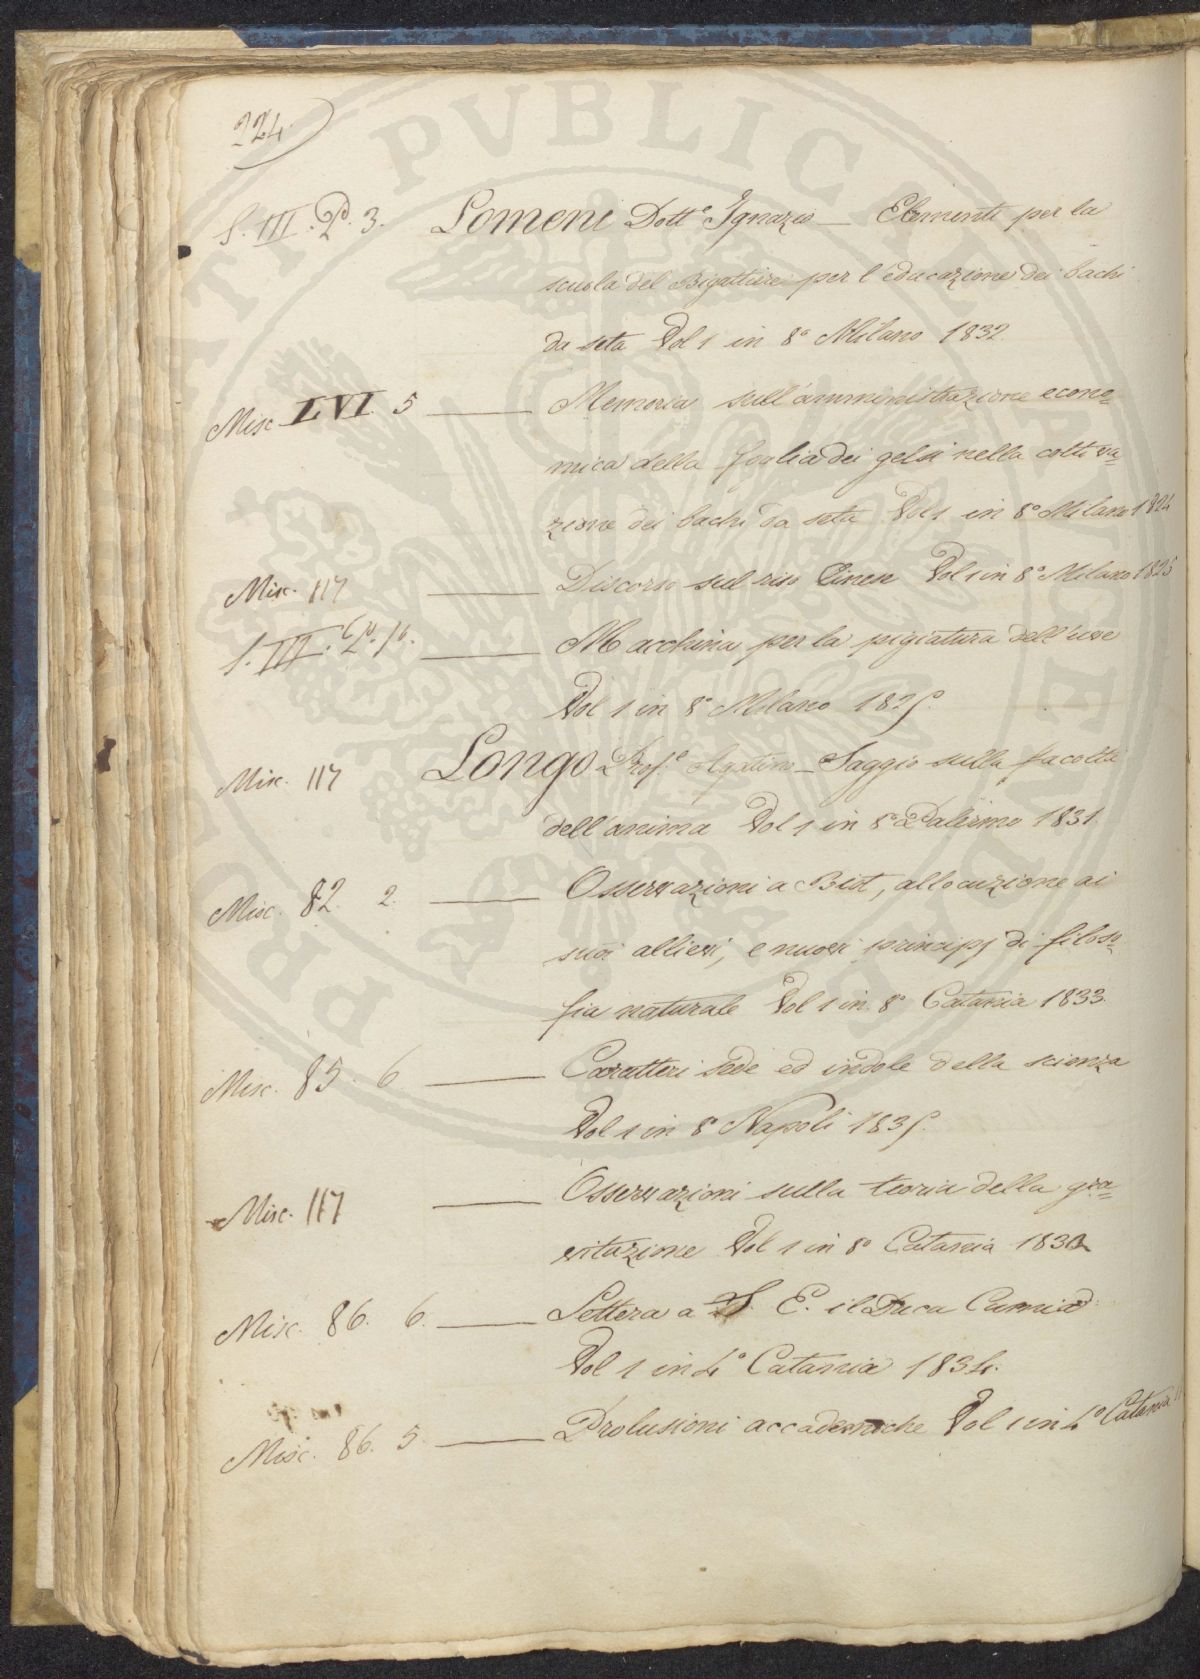 224.
S. III. P. 3. Lomeni Dott.e Ignazio — Elementi per la
scuola del Bigattiere per l'educazione dei bachi
da seta Vol 1 in 8° Milano 1832.
Misc. LVI. 5 — Memoria sull'amministrazione econo=
mica della foglia dei gelsi nella coltiva=
zione dei bachi da seta Vol 1 in 8° Milano 1824
Misc. 117 — Discorso sul riso Cinese Vol 1 in 8° Milano 1825
S. III. — Macchina per la pigiatura dell'uve
Vol 1 in 8° Milano 1825.
Misc. 117 Longo Prof.e Agatino — Saggio sulla facoltà
dell anima Vol 1 in 8° Palermo 1831.
Misc. 82. 2. — Osservazioni a Biot, allocuzione ai
suoi allievi, e nuovi principj di filoso=
fia naturale Vol 1 in 8° Catania 1833.
Misc. 85. 6 — Caratteri sede ed indole della scienza
Vol 1 in 8° Napoli 1835.
Misc. 117 — Osservazioni sulla teoria della gra=
vitazione Vol 1 in 8° Catania
Misc. 86. 6. — Lettera a S. E. il Duca
Vol 1 in 4° Catania 1834.
Misc. 86. 5 — Prolusioni accademiche Vol 1 in 4° Catania
PROVIDENTIAE PUBLICAE